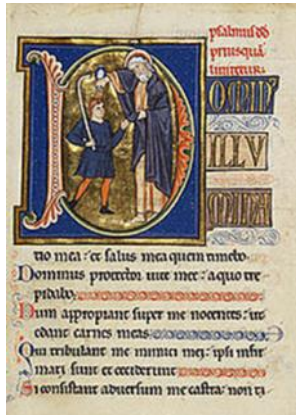 psalmus dd
priusquā
liniretur
DOMIN'
ILLV
MINA
tio mea et salus mea quem timebo
Dominus protector uite mee a quo tre
pidabo
Dum appropiant super me nocentes ut
edant carnes meas
Qui tribulant me inimici mei ipsi infir
mati sunt et ceciderunt
Si consistant aduersum me castra non ti